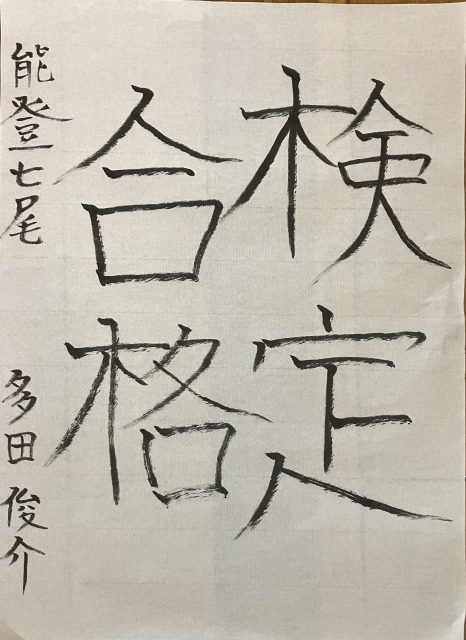 検定
合格
能登七尾 多田俊介